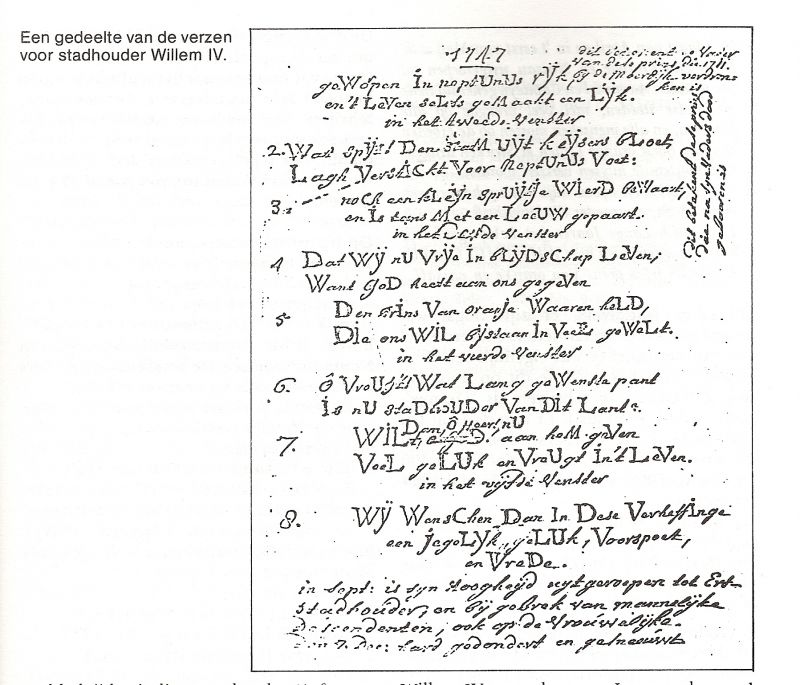 Een gedeelte van de verzen
voor stadhouder Willem IV.
1747
dit betekent de Vader
van dese prins, die 1711.
bij de Moerdijk verdron-
ken is
geWorpen In neptUnUs rÿk
en't LeVen selfs geMaakt een LÿK.
in het tweede venster
2. Wat spÿt! Den staM Uÿt keÿsers bLoet,
Lagh VerstICkt Voor neptUnUs Voet:
3. noch een kLeÿn sprUÿtje WIerD beWaart,
en Is tans Met een LeeUW gepaart.
in het derde venster
Dit betekent dese prins
die na syn Vaders dood
gebooren is
4 Dat Wÿ nU Vrÿe In bLÿDsChap LeVen,
Want GoD heeft aan ons gegeVen
5 Den prins Van oranje Waaren heLD,
DIe ons WIL bÿstaan In Veels geWeLt.
in het vierde venster
6. Ô VreUgt! Wat Lang geWenste pant
Is nU staDhoUDer Van DIt Lant.
7. WIL Dan, Ô Heer! nU aan heM geVen
VeeL geLUk en VreUgt In't LeVen.
in het vijfde venster
8. Wÿ WensChen Dan In Dese Verheffinge
een jegeLÿk, geLUk, Voorspoet,
en VreDe.
in sept: is syn Hoogheijd uytgeroepen tot Erf-
Stadhouder, en bij gebrek van mannelijke
Descendenten, ook op de Vrouwelijke.
den 7. Dec: hard gedondert en gesneeuwt